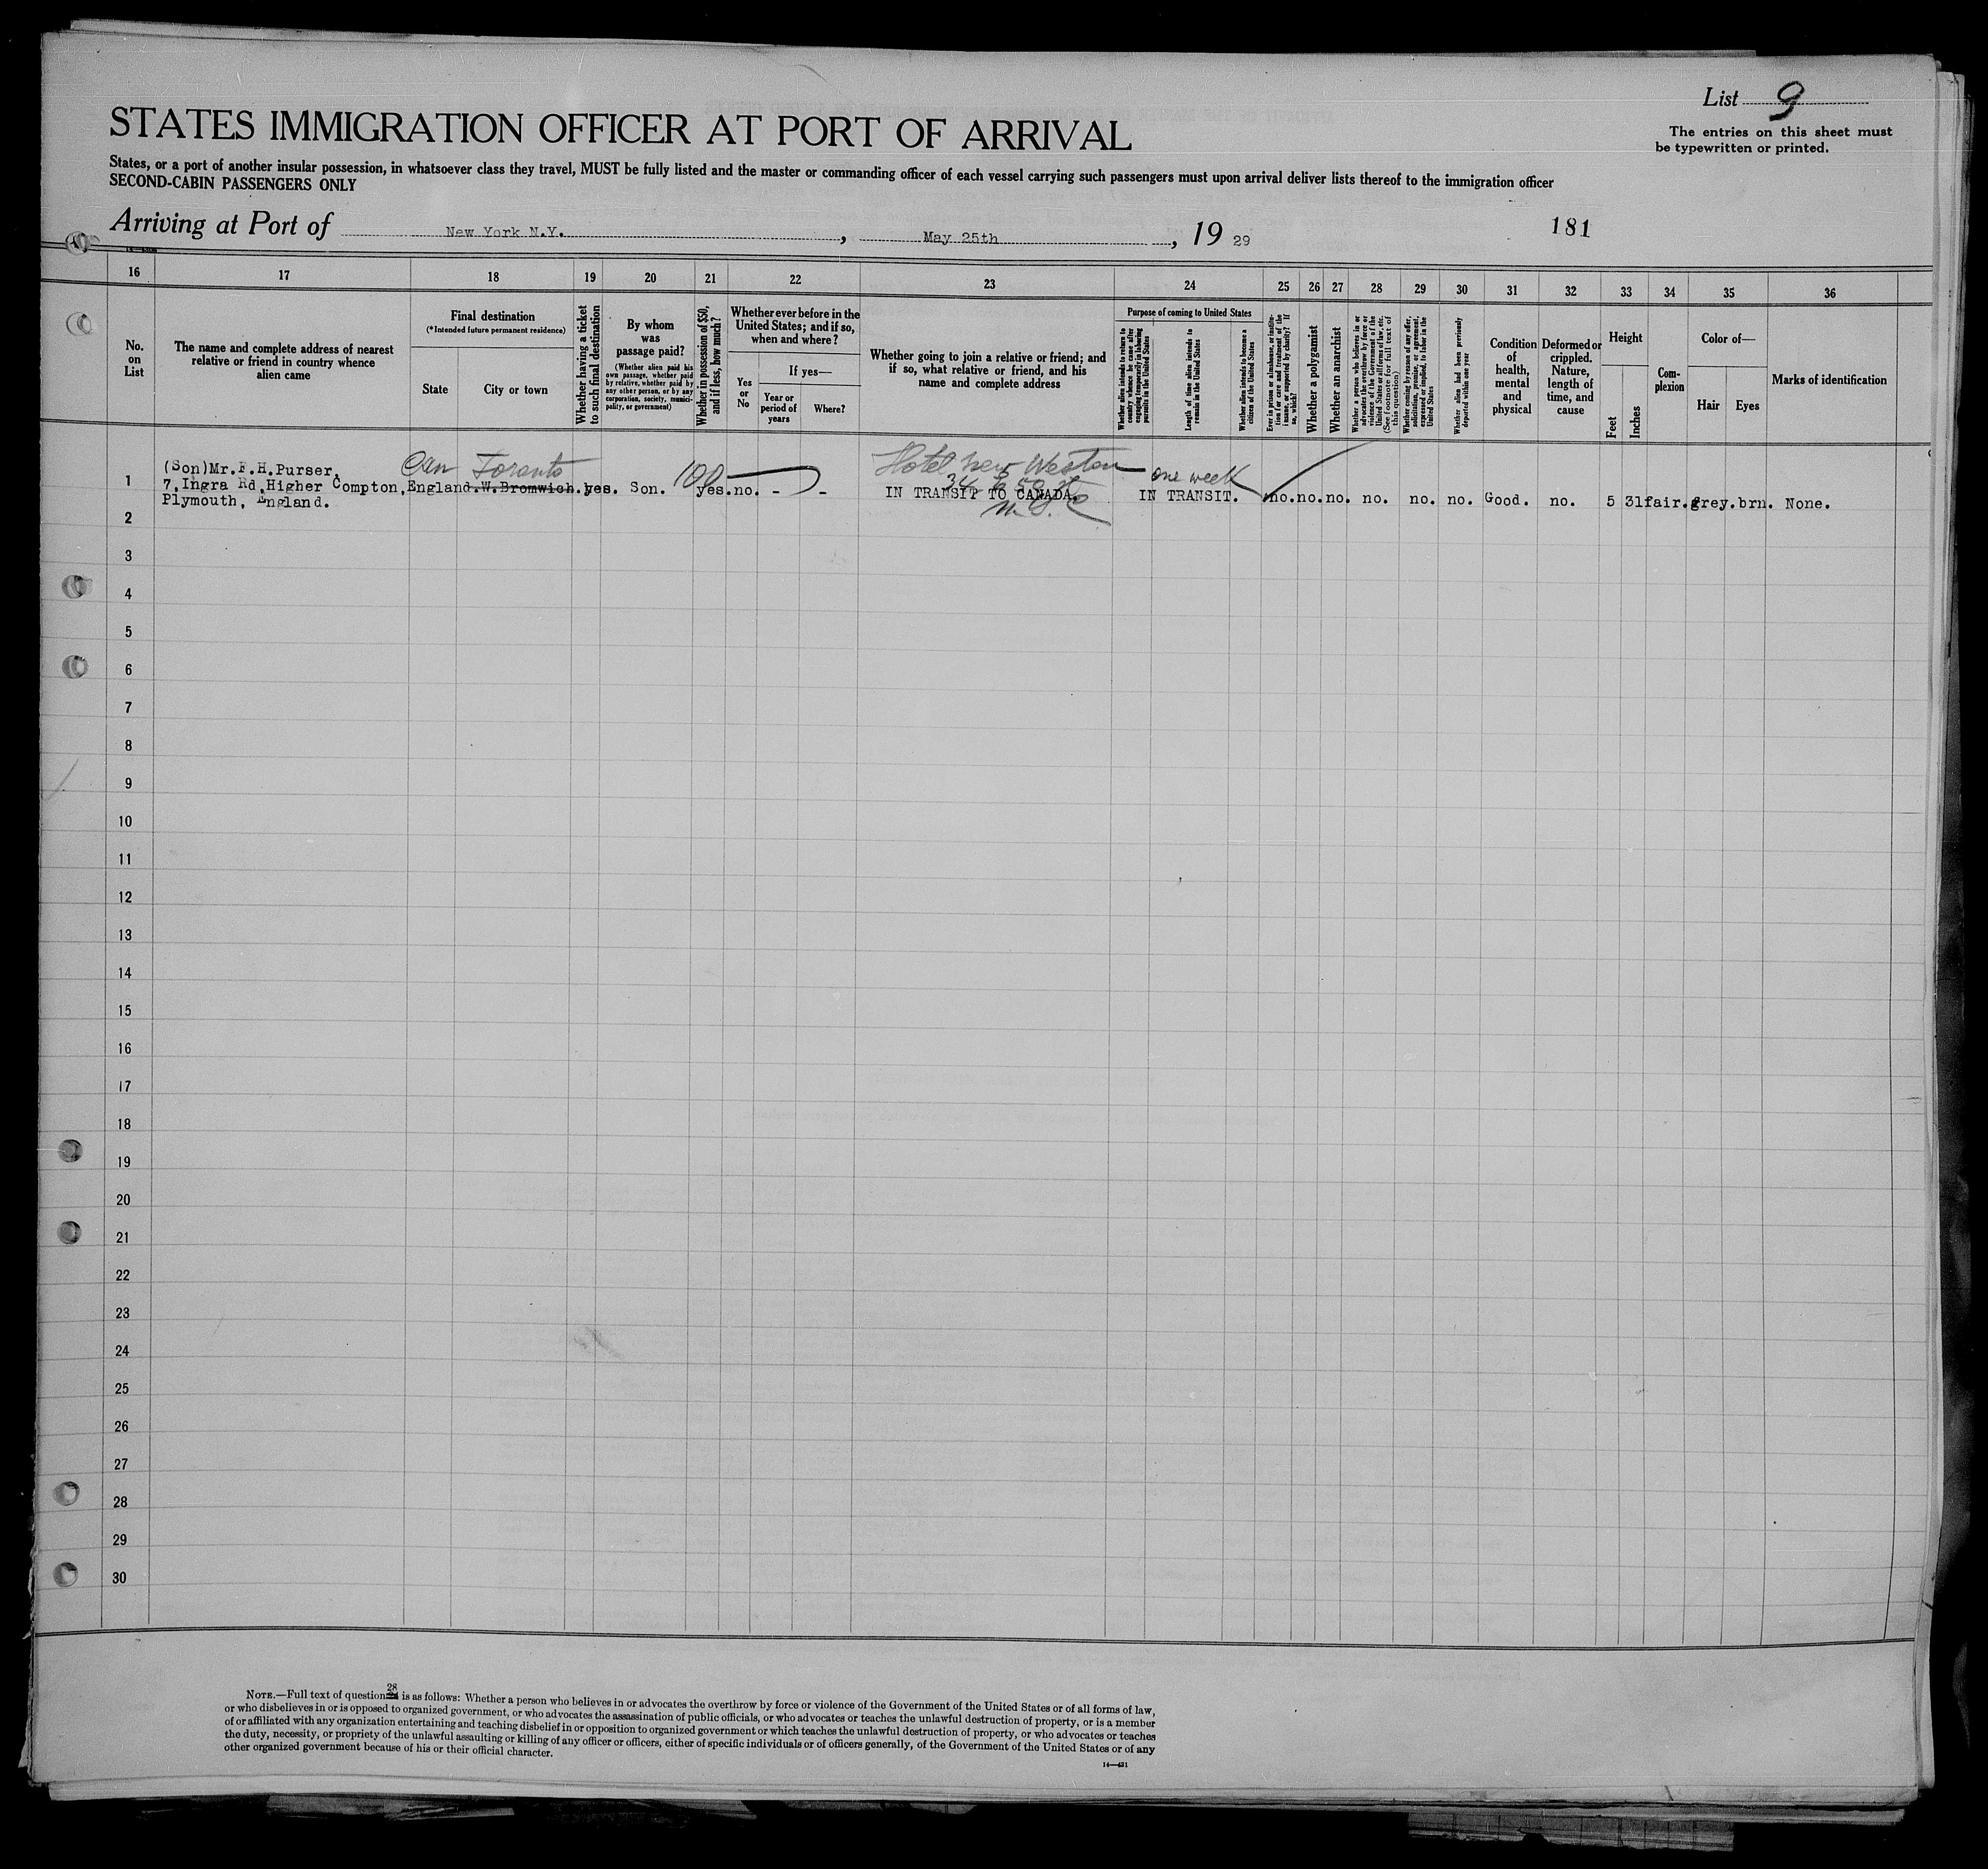 List 9
STATES IMMIGRATION OFFICER AT PORT OF ARRIVAL
The entries on this sheet must
be typewritten or printed.
States, or a port of another insular possession, in whatsoever class they travel, MUST be fully listed and the master or commanding officer of each vessel carrying such passengers must upon arrival deliver lists thereof to the immigration officer
SECOND-CABIN PASSENGERS ONLY
Arriving at Port of New York N.Y. , May 25th , 19 29
181
16 17 18 19 20 21 22 23 24 25 26 27 28 29 30 31 32 33 34 35 36
No.
on
List
The name and complete address of nearest
relative or friend in country whence
alien came
Final destination
(*Intended future permanent residence)
State
City or town
Whether having a ticket
to such final destination
By whom
was
passage paid?
(Whether alien paid his
own passage, whether paid
by relative, whether paid by
any other person, or by any
corporation, society, munici-
pality, or government)
Whether in possession of $50,
and if less, how much?
Whether ever before in the
United States; and if so,
when and where?
Yes
or
No
If yes—
Year or
period of
years
Where?
Whether going to join a relative or friend; and
if so, what relative or friend, and his
name and complete address
Purpose of coming to United States
Whether alien intends to return to
country whence he came after
engaging temporarily in laboring
pursuits in the United States
Length of time alien intends to
remain in the United States
Whether alien intends to become a
citizen of the United States
Ever in prison or almshouse, or institu-
tion for care and treatment of the
insane, or supported by charity? If
so, which?
Whether a polygamist
Whether an anarchist
Whether a person who believes in or
advocates the overthrow by force or
violence of the Government of the
United States or all forms of law, etc.
(See footnote for full text of
this question)
Whether coming by reason of any offer,
solicitation, promise, or agreement,
expressed or implied, to labor in the
United States
Whether alien had been previously
deported within one year
Condition
of
health,
mental
and
physical
Deformed or
crippled.
Nature,
length of
time, and
cause
Height
Feet
Inches
Com-
plexion
Color of—
Hair
Eyes
Marks of identification
Can Toronto 100 Hotel New Weston one week
(Son)Mr.F.H.Purser,
1 7,Ingra Rd,Higher Compton,England.W.Bromwich.yes. Son. yes.no. - - IN TRANSIT TO CANADA. IN TRANSIT. no.no.no. no. no. no. Good. no. 5 31fair.grey.brn. None.
34 E 50 St
Plymouth, England.
N.Y.C
2
3
4
5
6
7
8
9
10
11
12
13
14
15
16
17
18
19
20
21
22
23
24
25
26
27
28
29
30
28
NOTE.—Full text of question is as follows: Whether a person who believes in or advocates the overthrow by force or violence of the Government of the United States or of all forms of law,
or who disbelieves in or is opposed to organized government, or who advocates the assassination of public officials, or who advocates or teaches the unlawful destruction of property, or is a member
of or affiliated with any organization entertaining and teaching disbelief in or opposition to organized government or which teaches the unlawful destruction of property, or who advocates or teaches
the duty, necessity, or propriety of the unlawful assaulting or killing of any officer or officers, either of specific individuals or of officers generally, of the Government of the United States or of any
other organized government because of his or their official character.
14—431